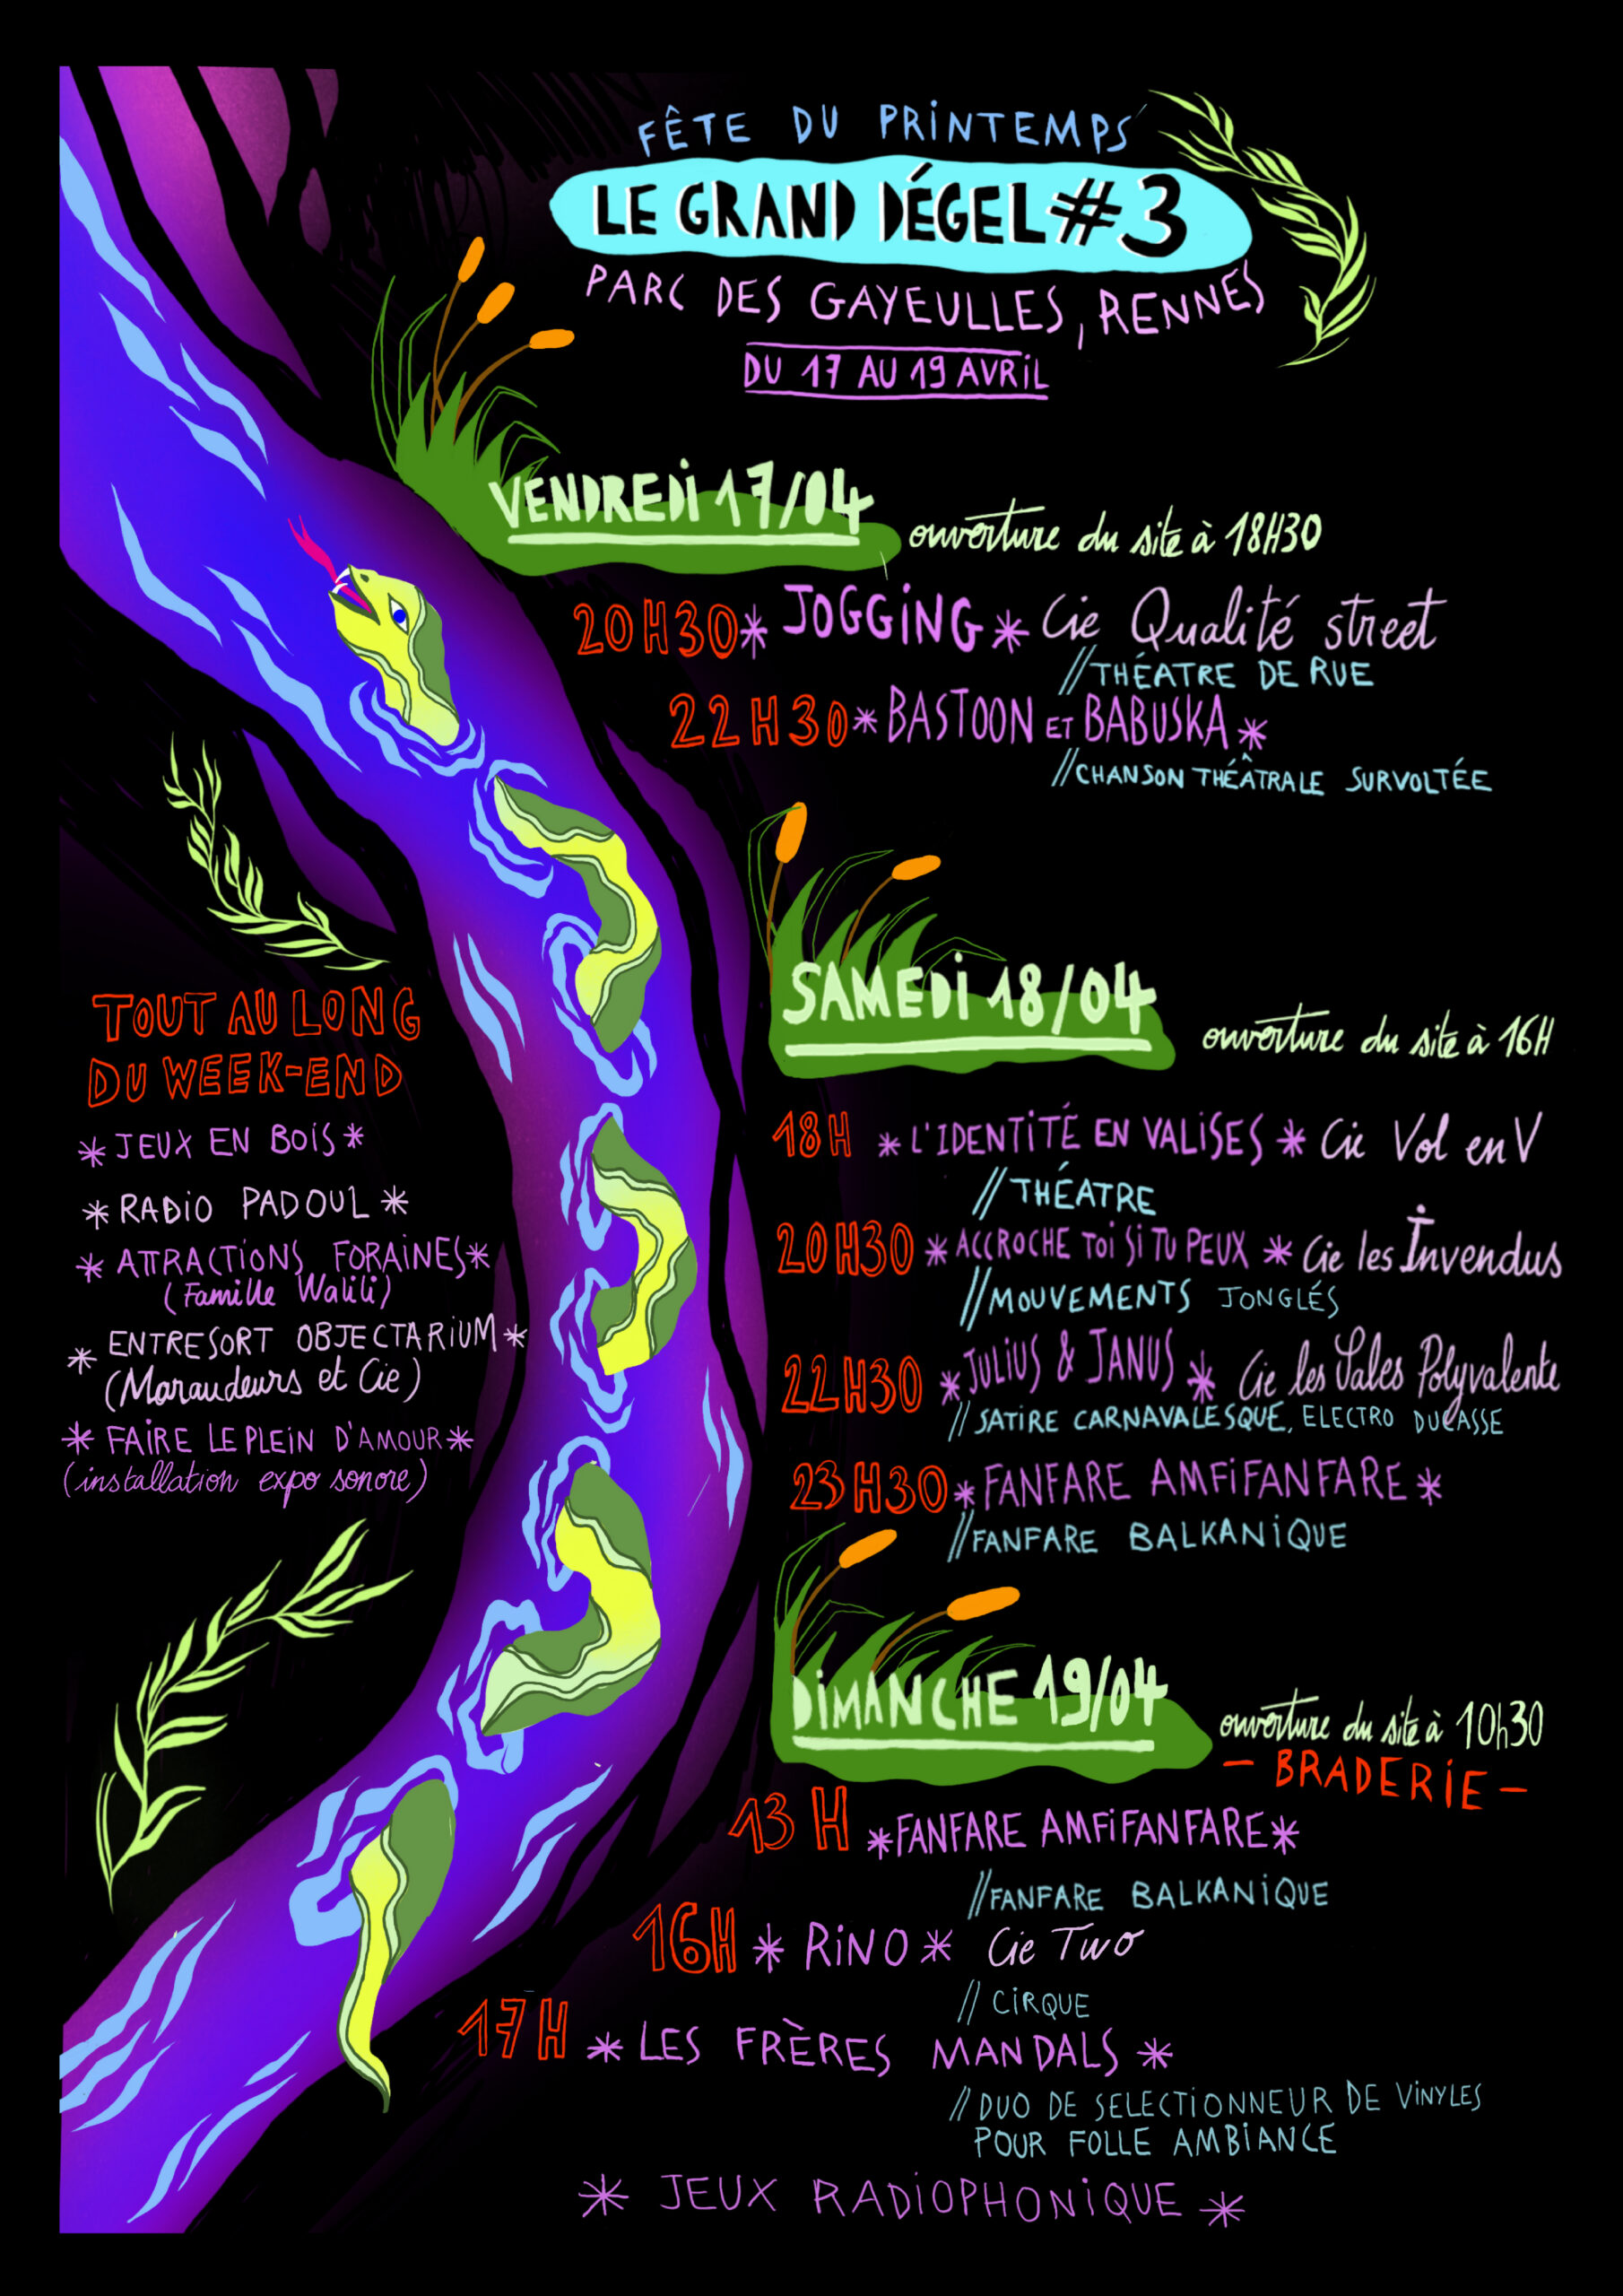 FÊTE DU PRINTEMPS
LE GRAND DÉGEL #3
PARC DES GAYEULLES, RENNES
DU 17 AU 19 AVRIL
VENDREDI 17/04 ouverture du site à 18H30
20H30 * JOGGING * Cie Qualité street
// THÉATRE DE RUE
22H30 * BASTOON ET BABUSKA *
// CHANSON THÉÂTRALE SURVOLTÉE
SAMEDI 18/04 ouverture du site à 16H
18H * L'IDENTITÉ EN VALISES * Cie Vol en V
// THÉATRE
20H30 * ACCROCHE TOI SI TU PEUX * Cie les Invendus
// MOUVEMENTS JONGLÉS
22H30 * JULIUS & JANUS * Cie les Sales Polyvalente
// SATIRE CARNAVALESQUE, ELECTRO DUCASSE
23H30 * FANFARE AMFIFANFARE *
// FANFARE BALKANIQUE
DIMANCHE 19/04 ouverture du site à 10h30
- BRADERIE -
13H * FANFARE AMFIFANFARE *
// FANFARE BALKANIQUE
16H * RINO * Cie Two
// CIRQUE
17H * LES FRÈRES MANDALS *
// DUO DE SELECTIONNEUR DE VINYLES
POUR FOLLE AMBIANCE
* JEUX RADIOPHONIQUE *
TOUT AU LONG
DU WEEK-END
* JEUX EN BOIS *
* RADIO PADOUL *
* ATTRACTIONS FORAINES *
(Famille Walili)
* ENTRESORT OBJECTARIUM *
(Maraudeurs et Cie)
* FAIRE LE PLEIN D'AMOUR *
(installation expo sonore)